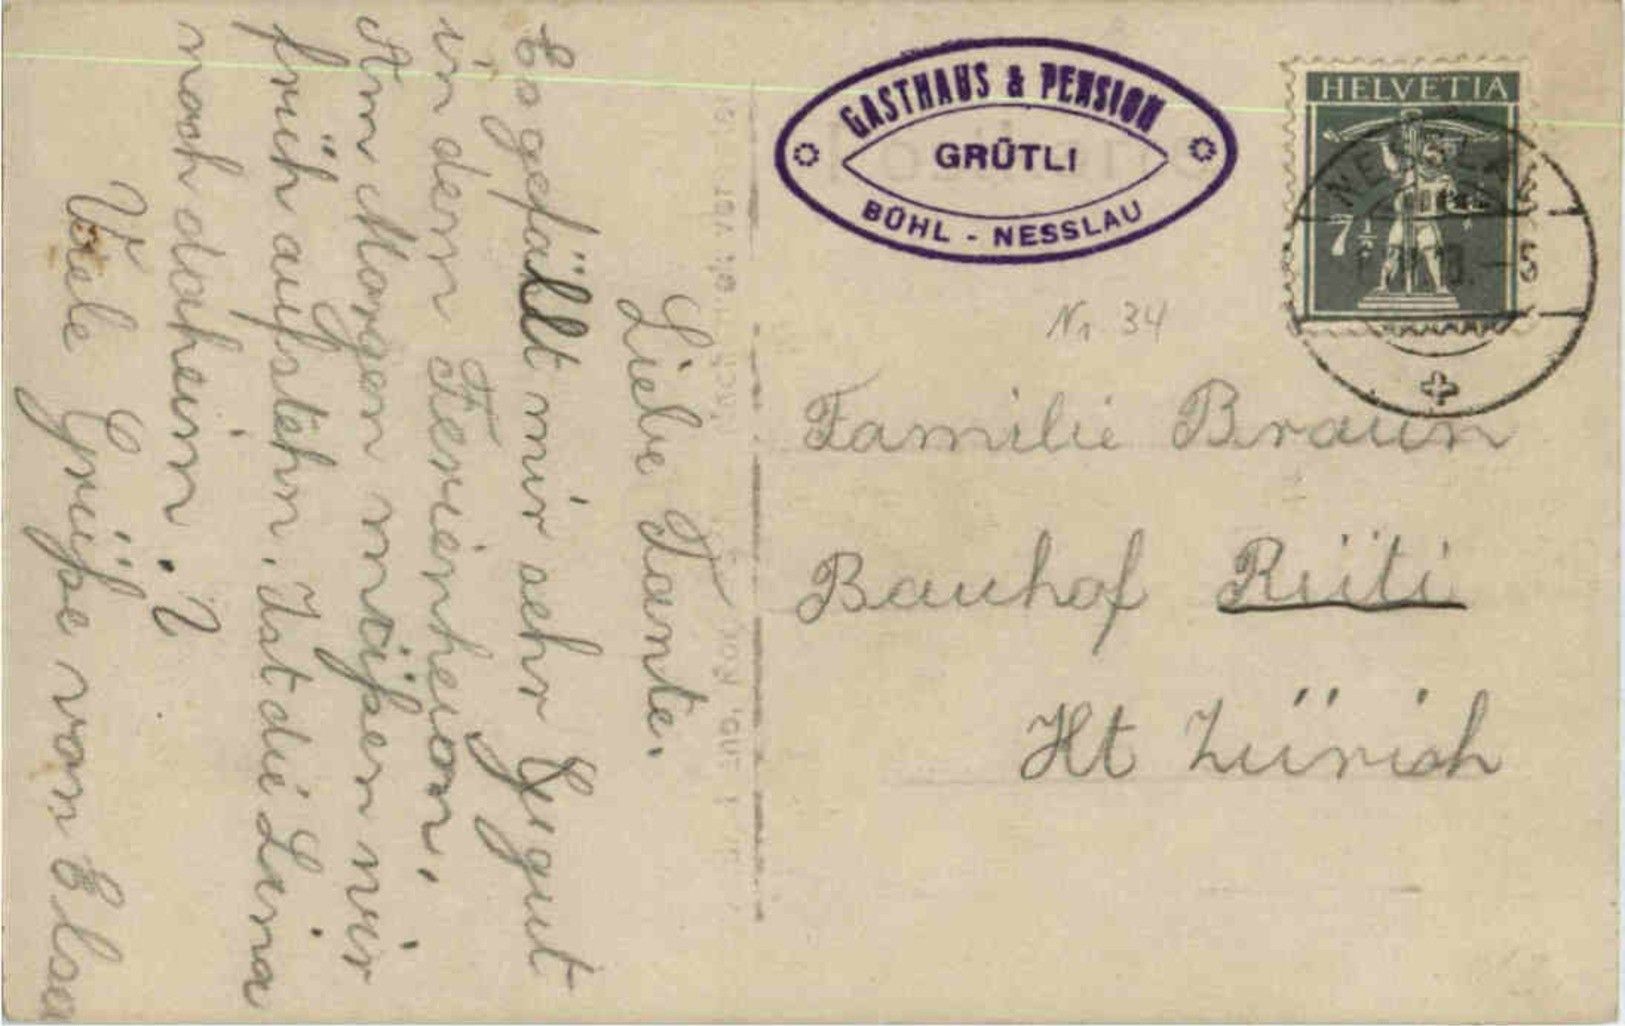 Liebe Tante.
Es gefällt mir sehr gut
in dem Ferienheim.
Am Morgen müßen wir
früh aufstehn. Ist die Lina
noch daheim.?
Viele Grüße von Elsa
GASTHAUS & PENSION
GRÜTLI
BÜHL - NESSLAU
HELVETIA
7½
NESSLAU
Nr. 34
Familie Braun
Bauhof Rüti
Kt Zürich